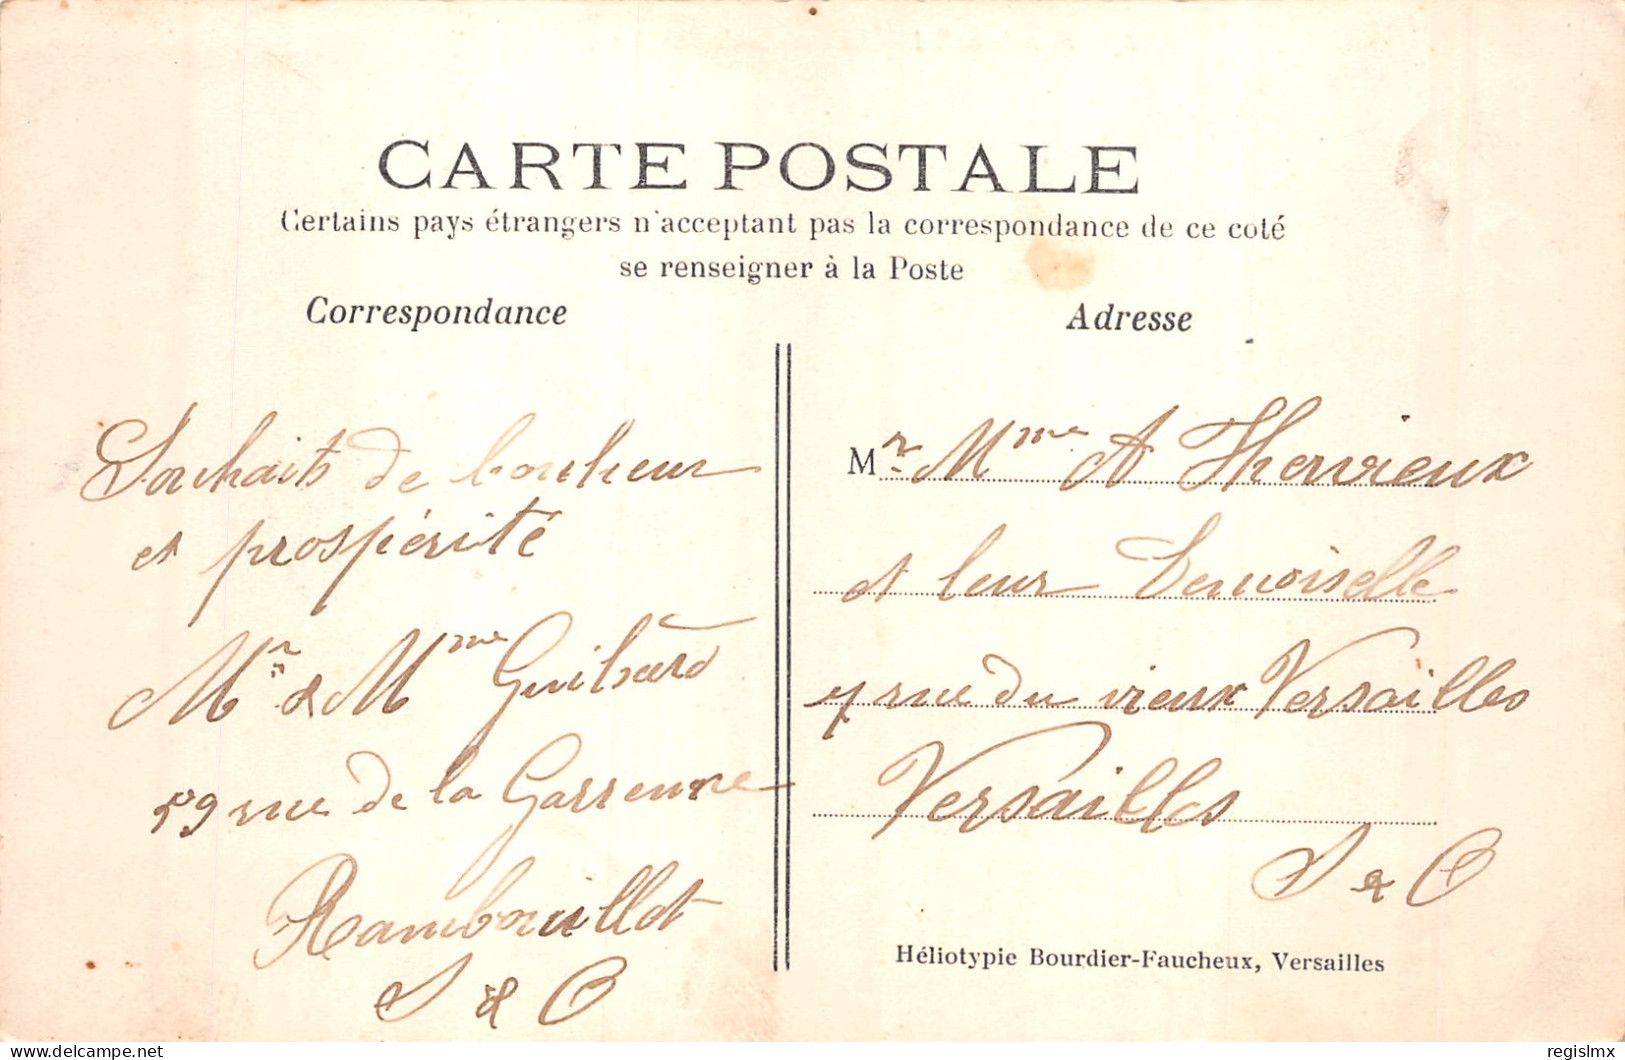 CARTE POSTALE
Certains pays étrangers n'acceptant pas la correspondance de ce coté
se renseigner à la Poste
Correspondance
Adresse
Souhaits de bonheur
et prospérité
Mr & Mme Guibard
59 rue de la Garrenne
Rambouillet
S & O
Mr Mme A Thervieux
et leur Demoiselle
7 rue du vieux Versailles
Versailles
S & O
Héliotypie Bourdier-Faucheux, Versailles
delcampe.net
regislmx